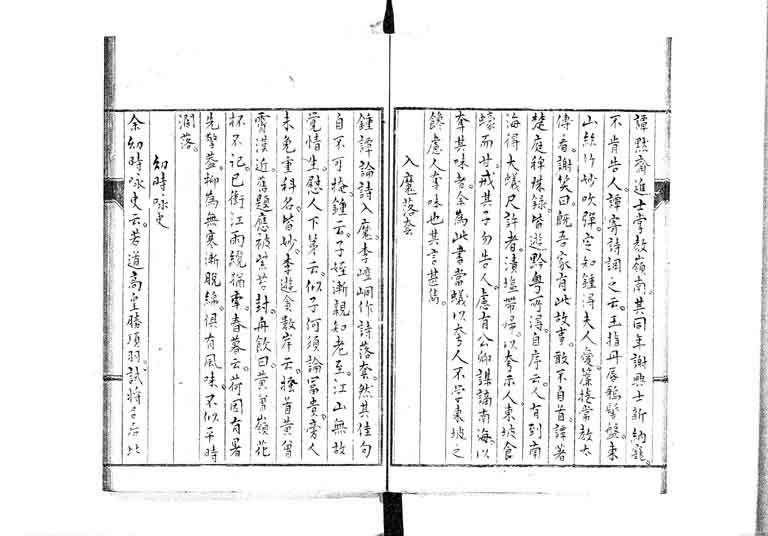 譚默齋進士掌教嶺南其同年謝興士新納寵
不肯告人譚寄詩調之云玉指丹唇鴉髻盤東
山絲竹妙吹彈定知鍾得夫人愛簾捲常教大
傅看謝笑曰既吾家有此故事敢不自首譚著
楚庭稗珠錄皆遊黔粵所得自序云人有到南
海得大蟻尺許者漬鹽帶歸以夸示人東坡食
蠔而甘戒其子勿告人慮有公卿謀謫南海以
奪其味者余為此書當蟻以夸人不學東坡之
饞慮人奪味也其言甚雋
入魔落套
鍾譚論詩入魔李崆峒作詩落套然其佳句
自不可掩鍾云子姪漸親知老至江山無故
覺情生慰人下第云似子何須論富貴旁人
未免重科名皆妙李遊食數岸云搔首黃曾
霄漢近舊題應被紫苔封舟飲曰黃曾嶺花
杯不記已衝江雨纜猶牽春暮云何因有暑
先揮蓋柳為無寒漸脫綿俱有風味不似平時
濶落
幼時咏史
余幼時咏史云若道高皇勝項羽試將呂后比